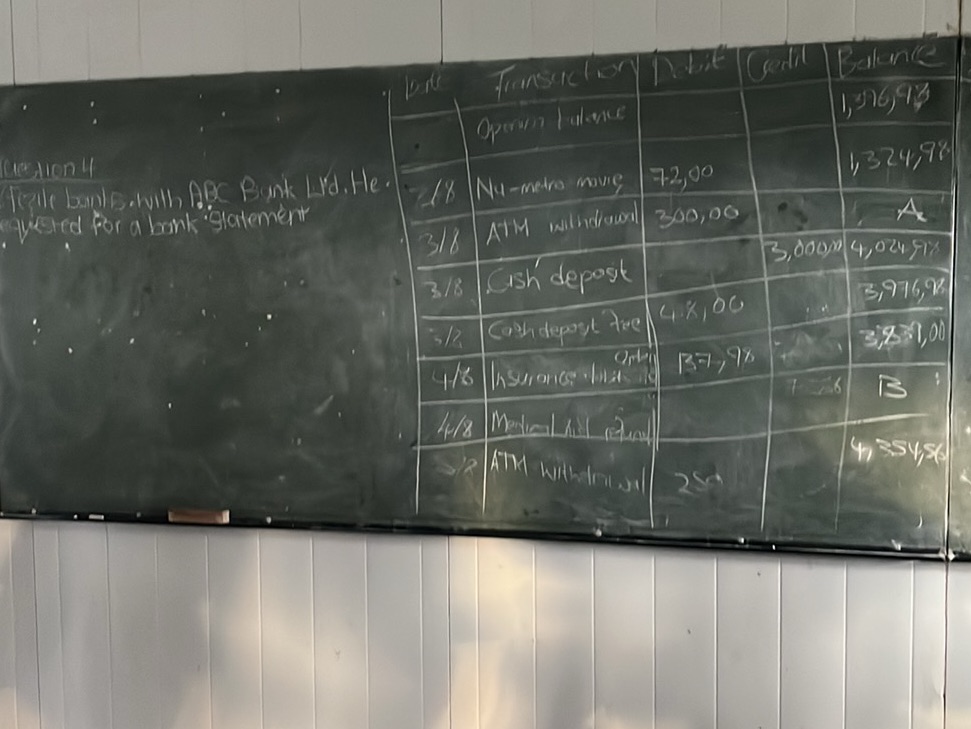 Question 4
banks with ABC Bank Ltd. He
for a bank statement
Date Transaction Debit Credit Balance
Opening balance
2/8 Nu-metro movie 72,00 1,324,98
3/8 ATM withdrawal 300,00 A
3/8 Cash deposit 3,000,00 4,024,98
3/8 Cash deposit fee 48,00 3,976,98
4/8 Insurance 137,98
4/8 Medical aid refund B
ATM withdrawal 4,354,56